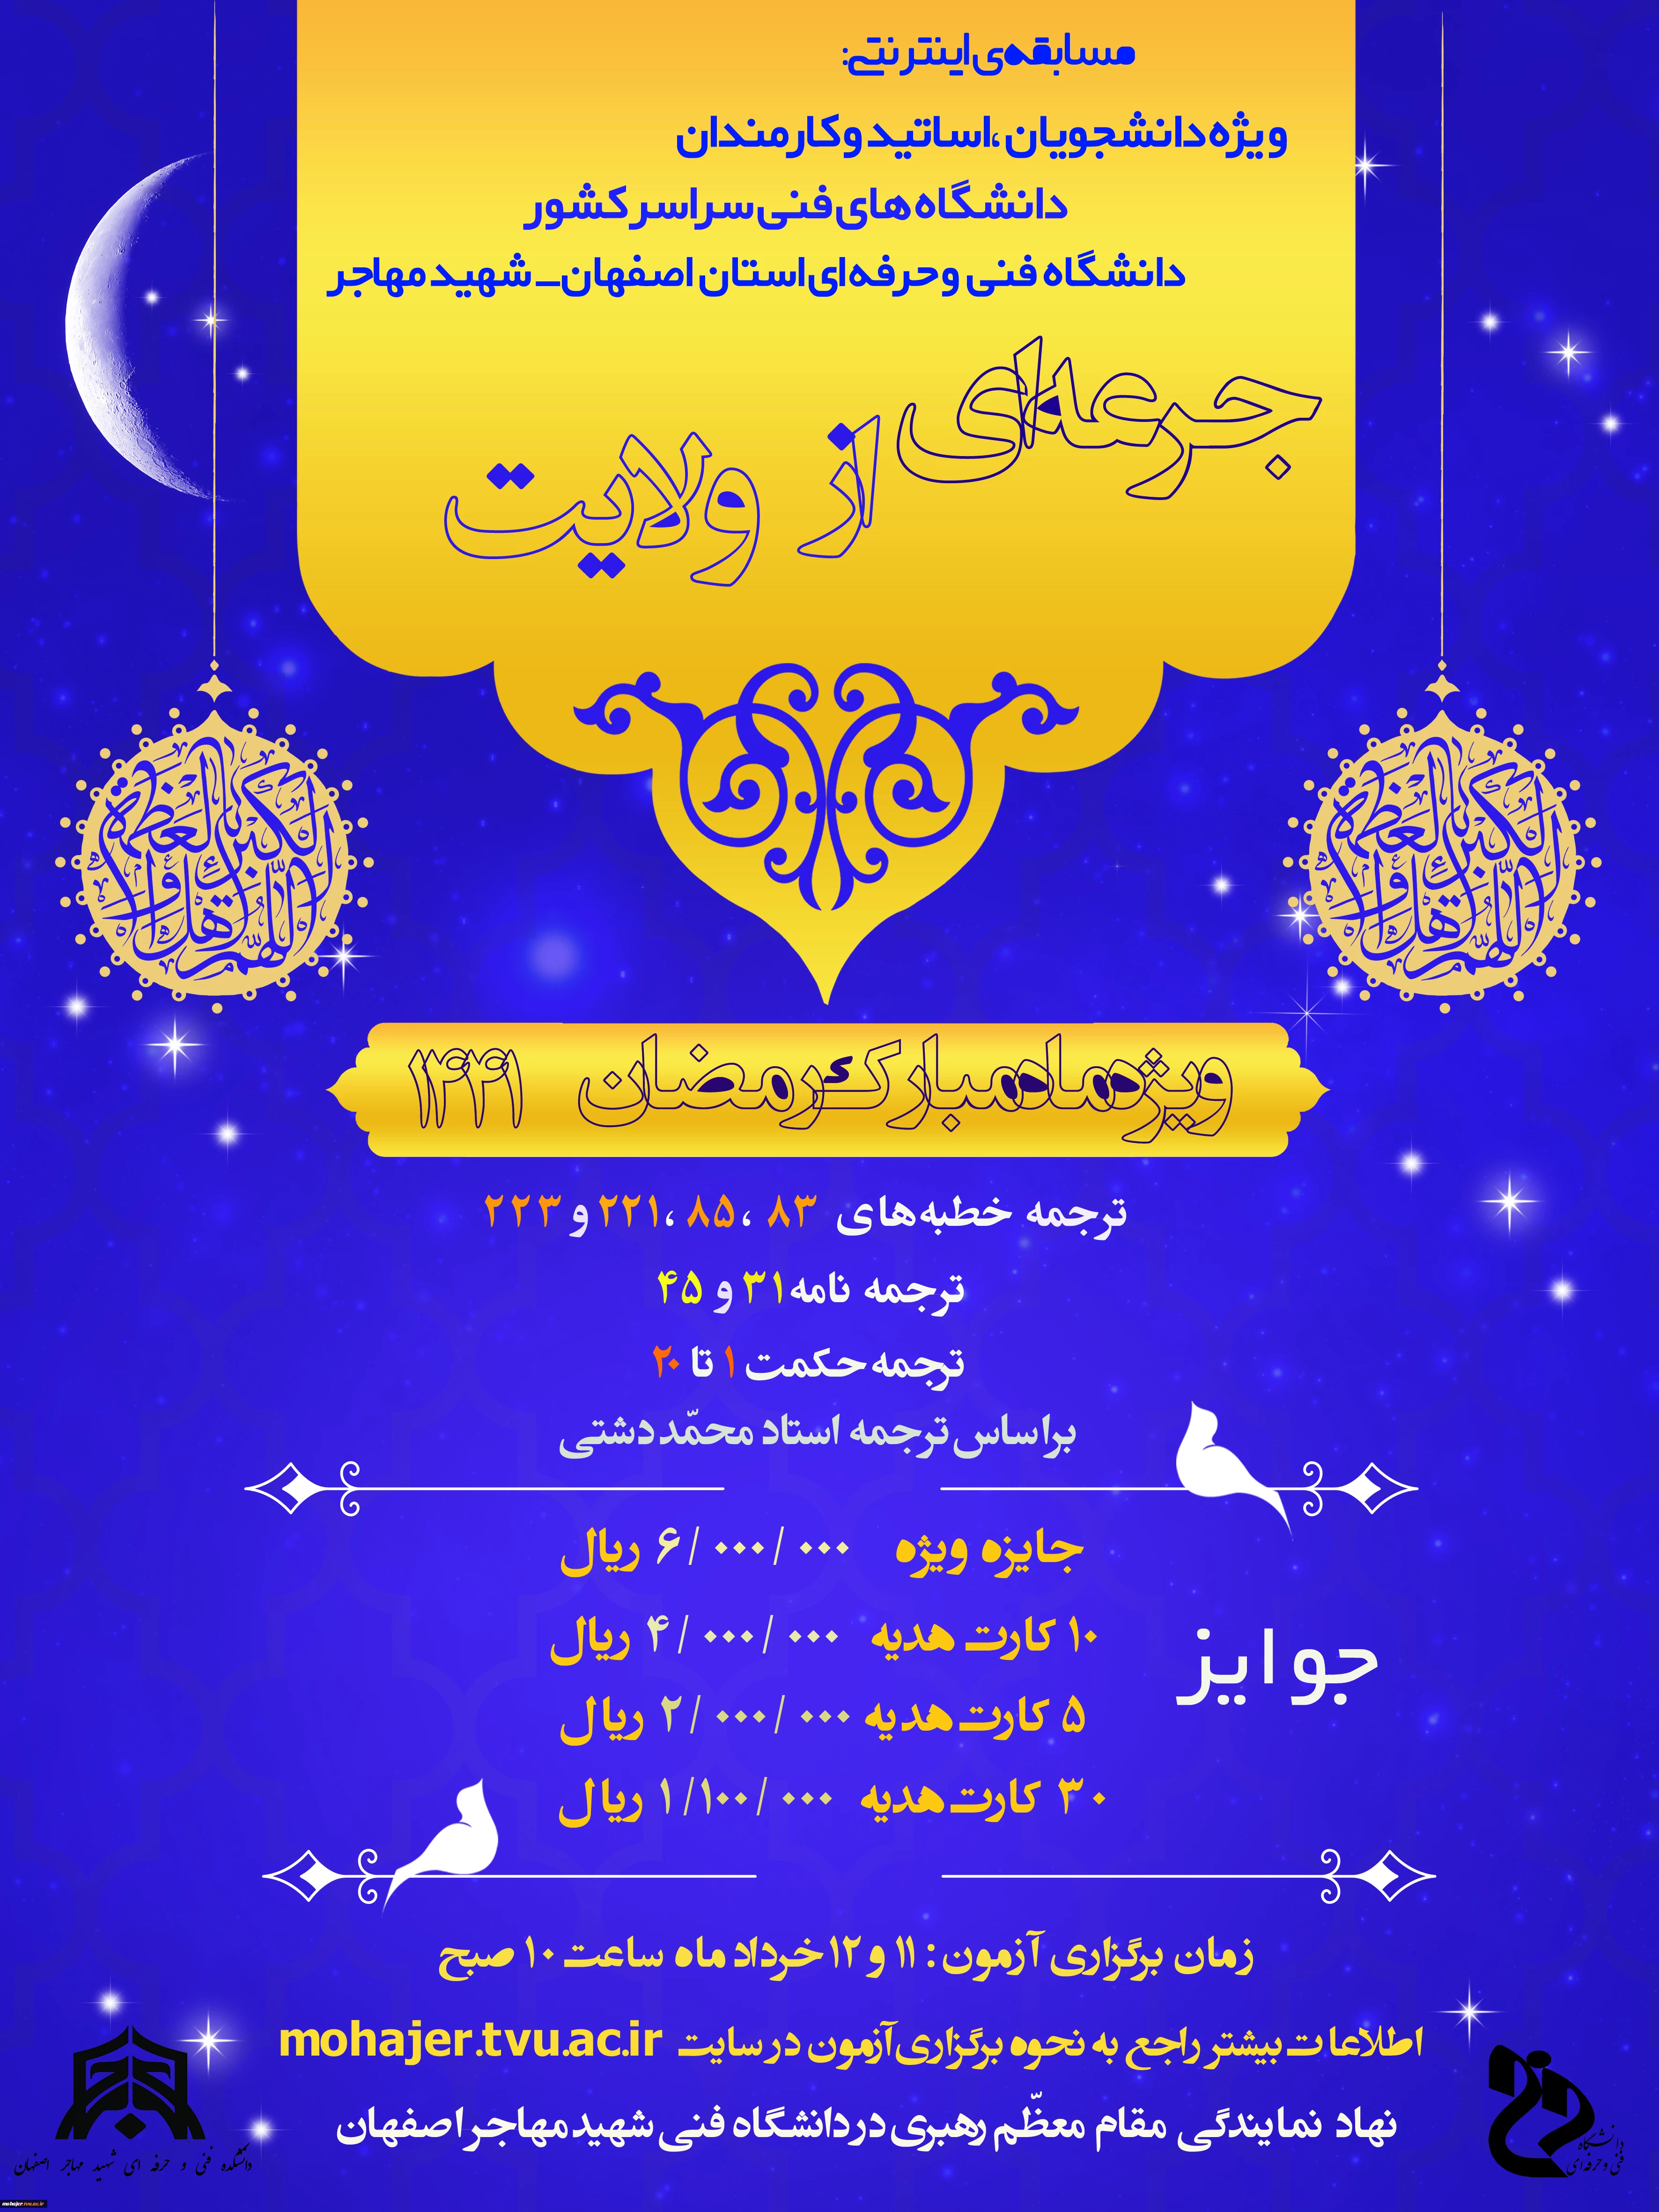 مسابقه‌ی اینترنتی:
ویژه دانشجویان ،اساتید و کارمندان
دانشگاه های فنی سراسر کشور
دانشگاه فنی و حرفه ای استان اصفهان_ شهید مهاجر
جرعه‌ای
از ولایت
اللهم اهل الکبریاء و العظمة
ویژه ماه مبارک رمضان ۱۴۴۱
اللهم اهل الکبریاء و العظمة
ترجمه خطبه‌های ۸۳ ، ۸۵ ،۲۲۱ و ۲۲۳
ترجمه نامه ۳۱ و ۴۵
ترجمه حکمت ۱ تا ۲۰
براساس ترجمه استاد محمّد دشتی
جوایز
جایزه ویژه ۶/۰۰۰/۰۰۰ ریال
۱۰ کارت هدیه ۴/۰۰۰/۰۰۰ ریال
۵ کارت هدیه ۲/۰۰۰/۰۰۰ ریال
۳۰ کارت هدیه ۱/۱۰۰/۰۰۰ ریال
زمان برگزاری آزمون : ۱۱ و ۱۲ خرداد ماه ساعت ۱۰ صبح
اطلاعات بیشتر راجع به نحوه برگزاری آزمون در سایت mohajer.tvu.ac.ir
نهاد نمایندگی مقام معظّم رهبری در دانشگاه فنی شهید مهاجر اصفهان
دانشگاه
فنی و حرفه‌ای
دانشکده فنی و حرفه ای شهید مهاجر اصفهان
mohajer.tvu.ac.ir